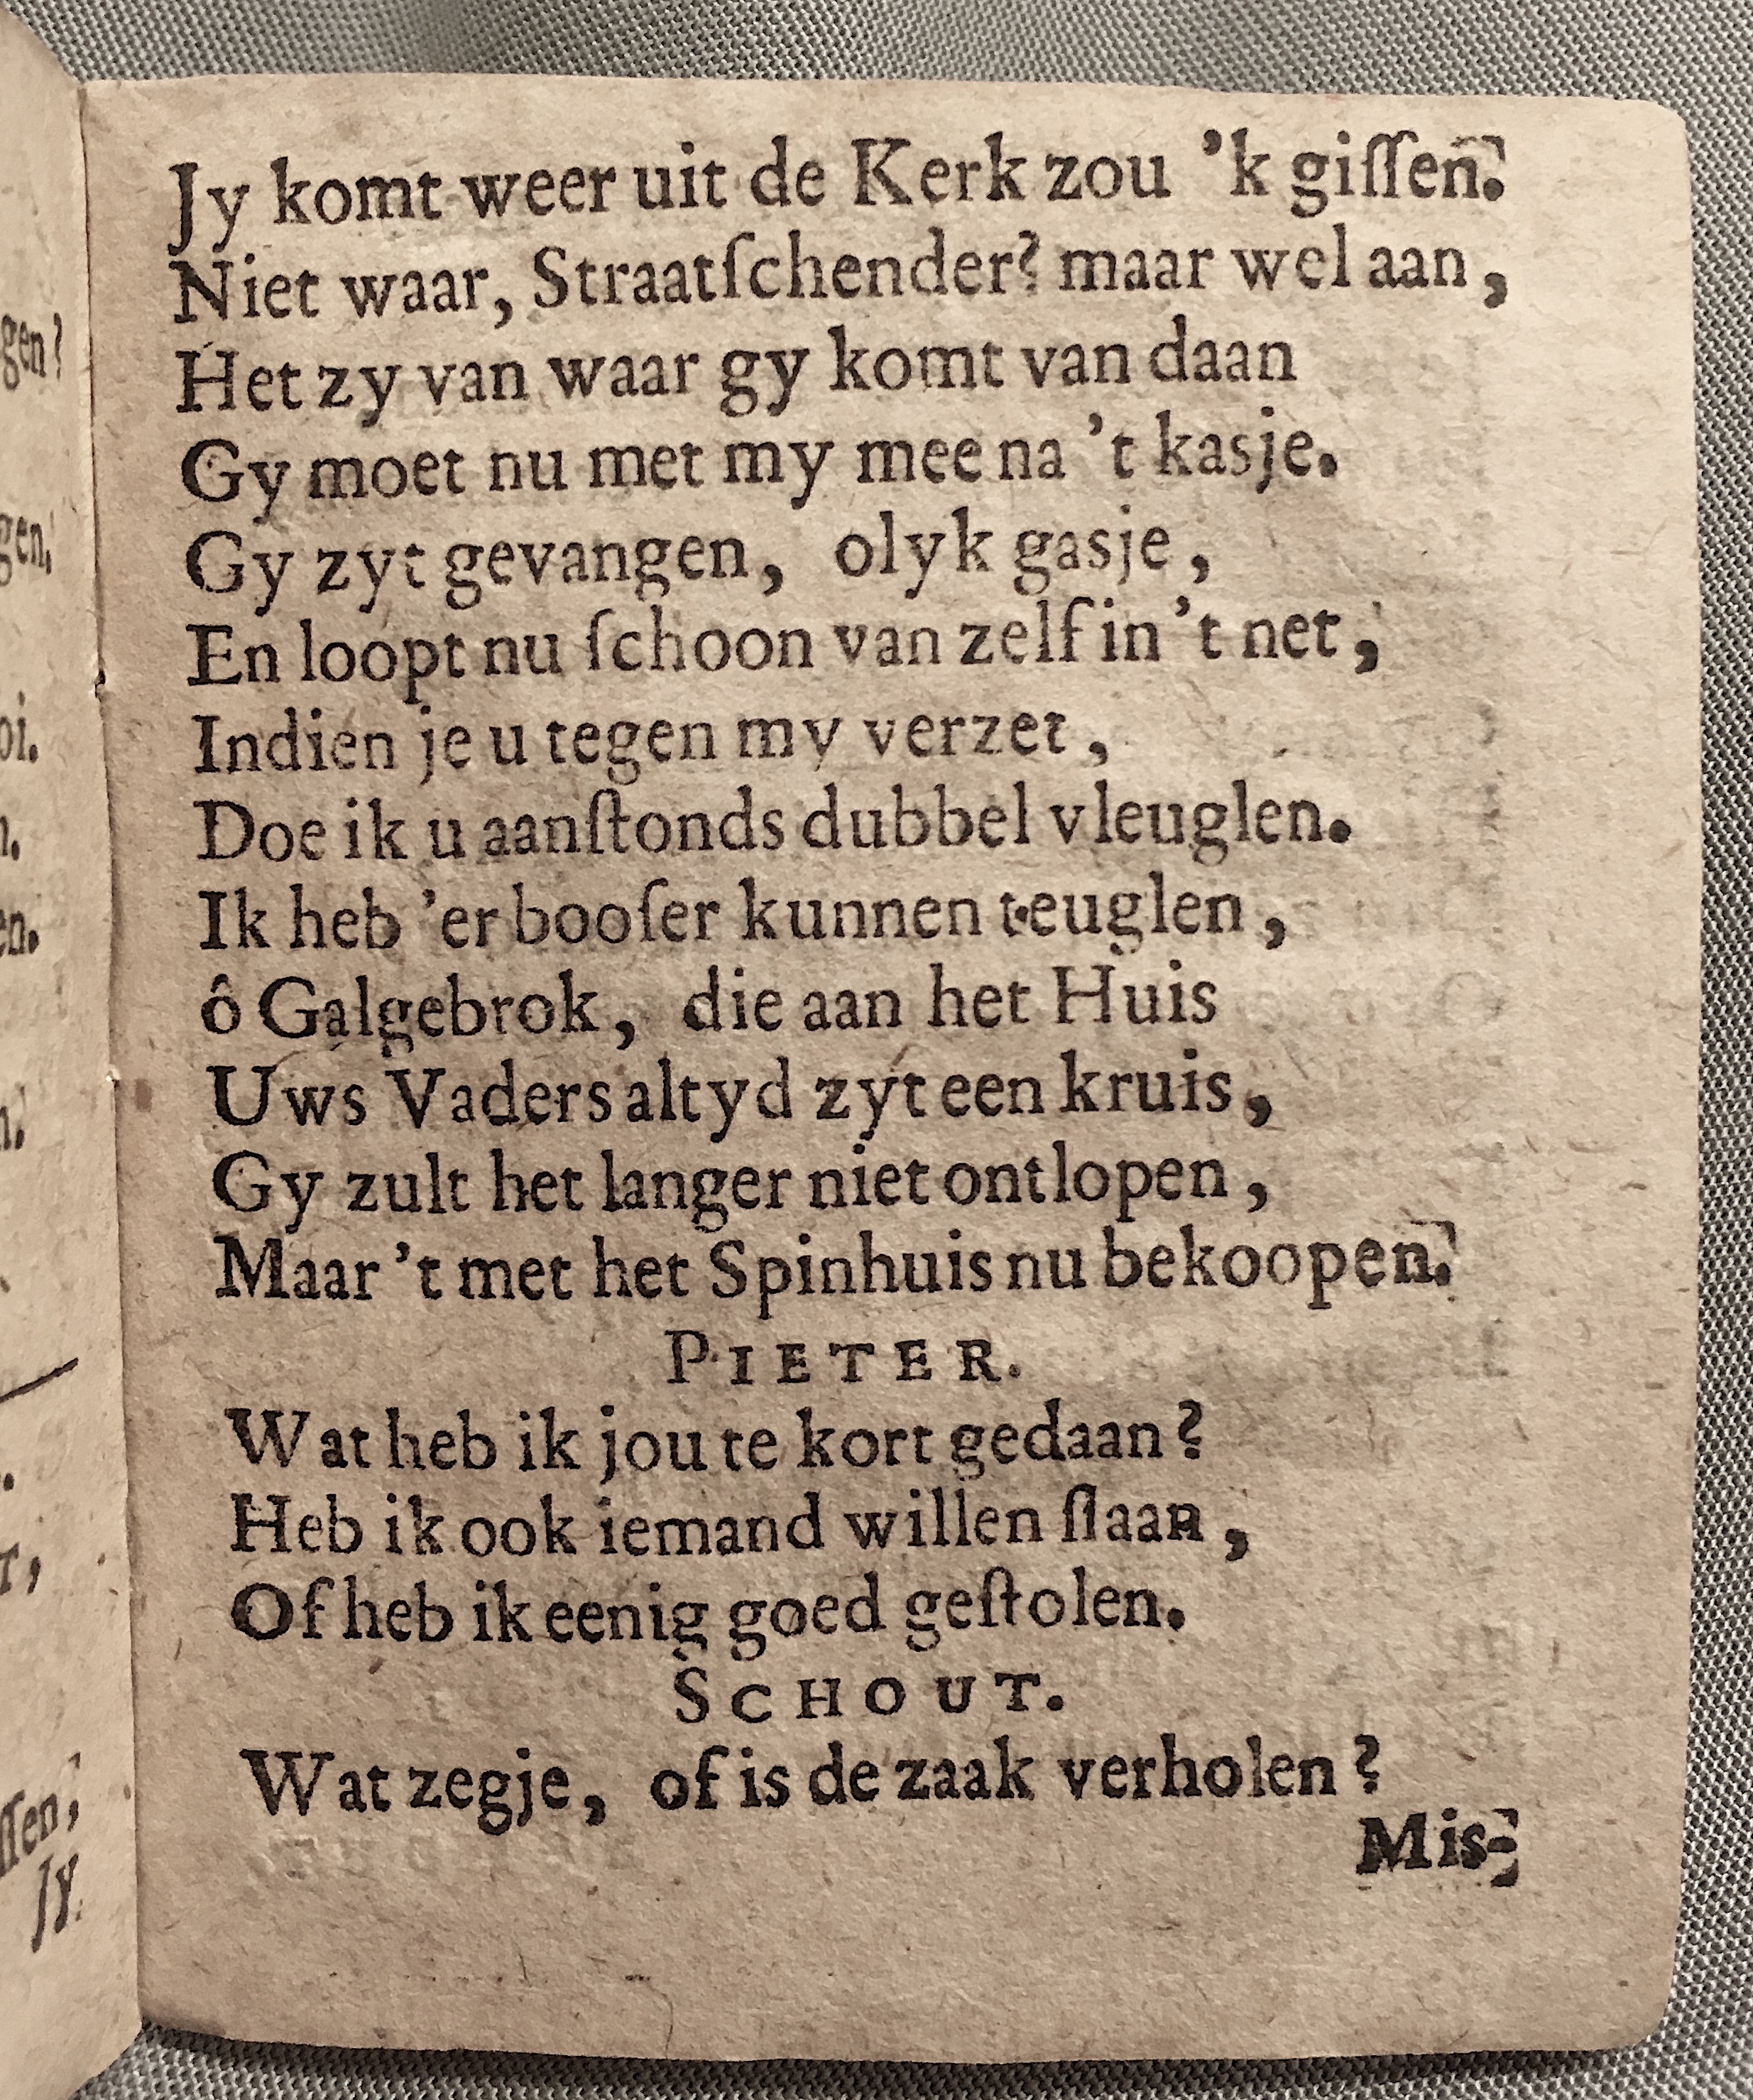 Jy komt weer uit de Kerk zou 'k giſſen.
Niet waar, Straatſchender? maar wel aan,
Het zy van waar gy komt van daan
Gy moet nu met my mee na 't kasje.
Gy zyt gevangen, olyk gasje,
En loopt nu ſchoon van zelf in 't net,
Indien je u tegen my verzet,
Doe ik u aanſtonds dubbel vleuglen.
Ik heb 'er booſer kunnen teuglen,
ô Galgebrok, die aan het Huis
Uws Vaders altyd zyt een kruis,
Gy zult het langer niet ontlopen,
Maar 't met het Spinhuis nu bekoopen.
PIETER.
Wat heb ik jou te kort gedaan?
Heb ik ook iemand willen ſlaan,
Of heb ik eenig goed geſtolen.
SCHOUT.
Wat zegje, of is de zaak verholen?
Mis-
gen?
gen.
oi.
en.
ſſen,
Jy